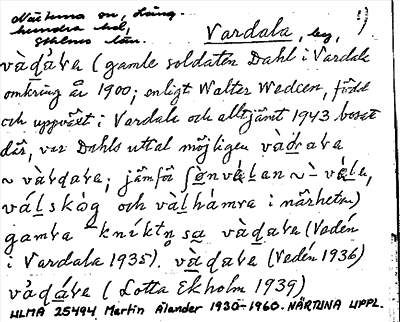 Närtuna sn, Lång-
hundra hd,
Sthlms län.
Vardala, by, 1)
vàḍaʀa (gamle soldaten Dahl i Vardala
omkring år 1900; enligt Walter Wedeen, född
och uppväxt i Vardala och alltjämt 1943 bosatt
där, var Dahls uttal möjligen vàdʀaʀa
~ vàʀdaʀa; jämför
váḷskòg och vàḷhámra i närheten)
gamʀa kníktṇ sa vàḍaʀa (Vedén
i Vardala 1935). vàḍaʀa (Vedén 1936)
vàḍáʀa (Lotta Ekholm 1939)
ULMA 25494 Martin Ålander 1930-1960. NÄRTUNA UPPL.